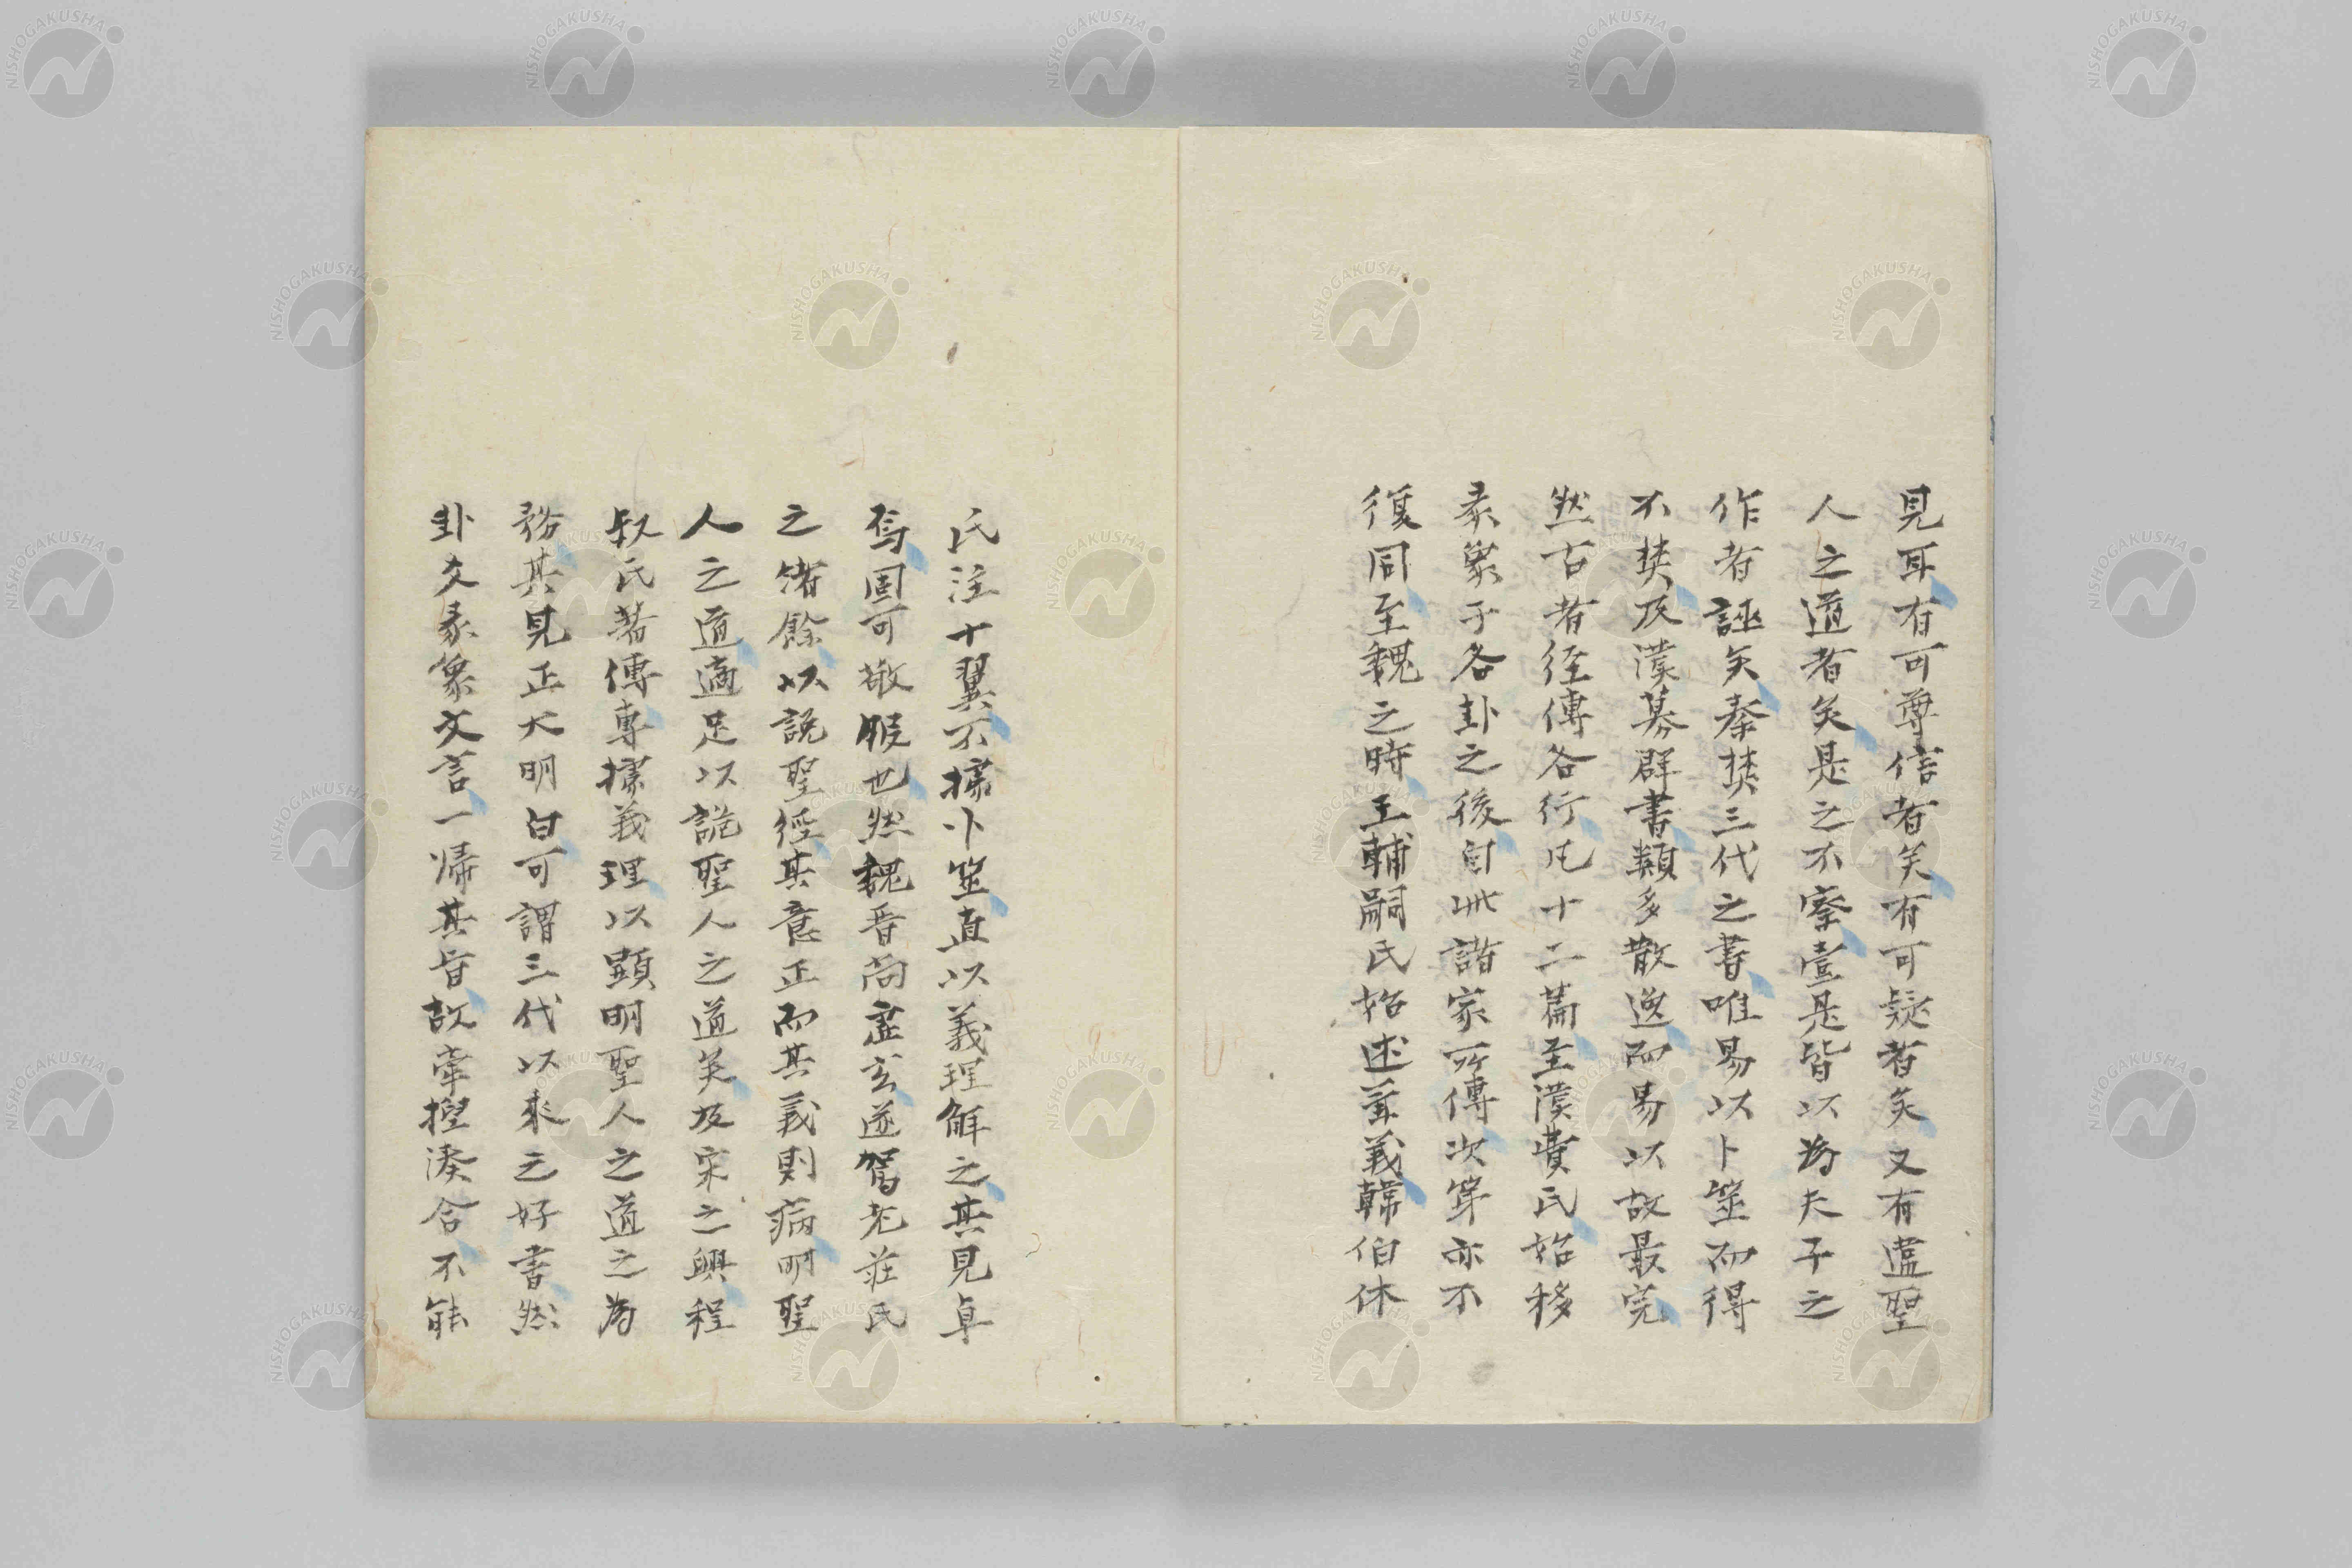 見耳有可尊信者矣有可疑者矣又有蠧聖
人之道者矣是之不察壹是皆以為夫子之
作者誣矣秦焚三代之書唯易以卜筮而得
不焚及漢募群書類多散逸而易以故最完
然古者径傳各行凡十二篇至漢費氏始移
彖象于各卦之後自此諸家所傳次第亦不
復同至魏之時王輔嗣氏始述業義韓伯休
氏注十翼不據卜筮直以義理解之其見卓
焉固可敬服也然魏晋尚虚玄遂駕老莊氏
之緒餘以説聖經其意正而其義則病明聖
人之道適足以詭聖人之道矣及宋之興程
叔氏著傳專據義理以顕明聖人之道之為
務其見正大明白可謂三代以來之好書然
卦爻彖象文言一帰其旨故牽揑湊合不能
NISHOGAKUSHA